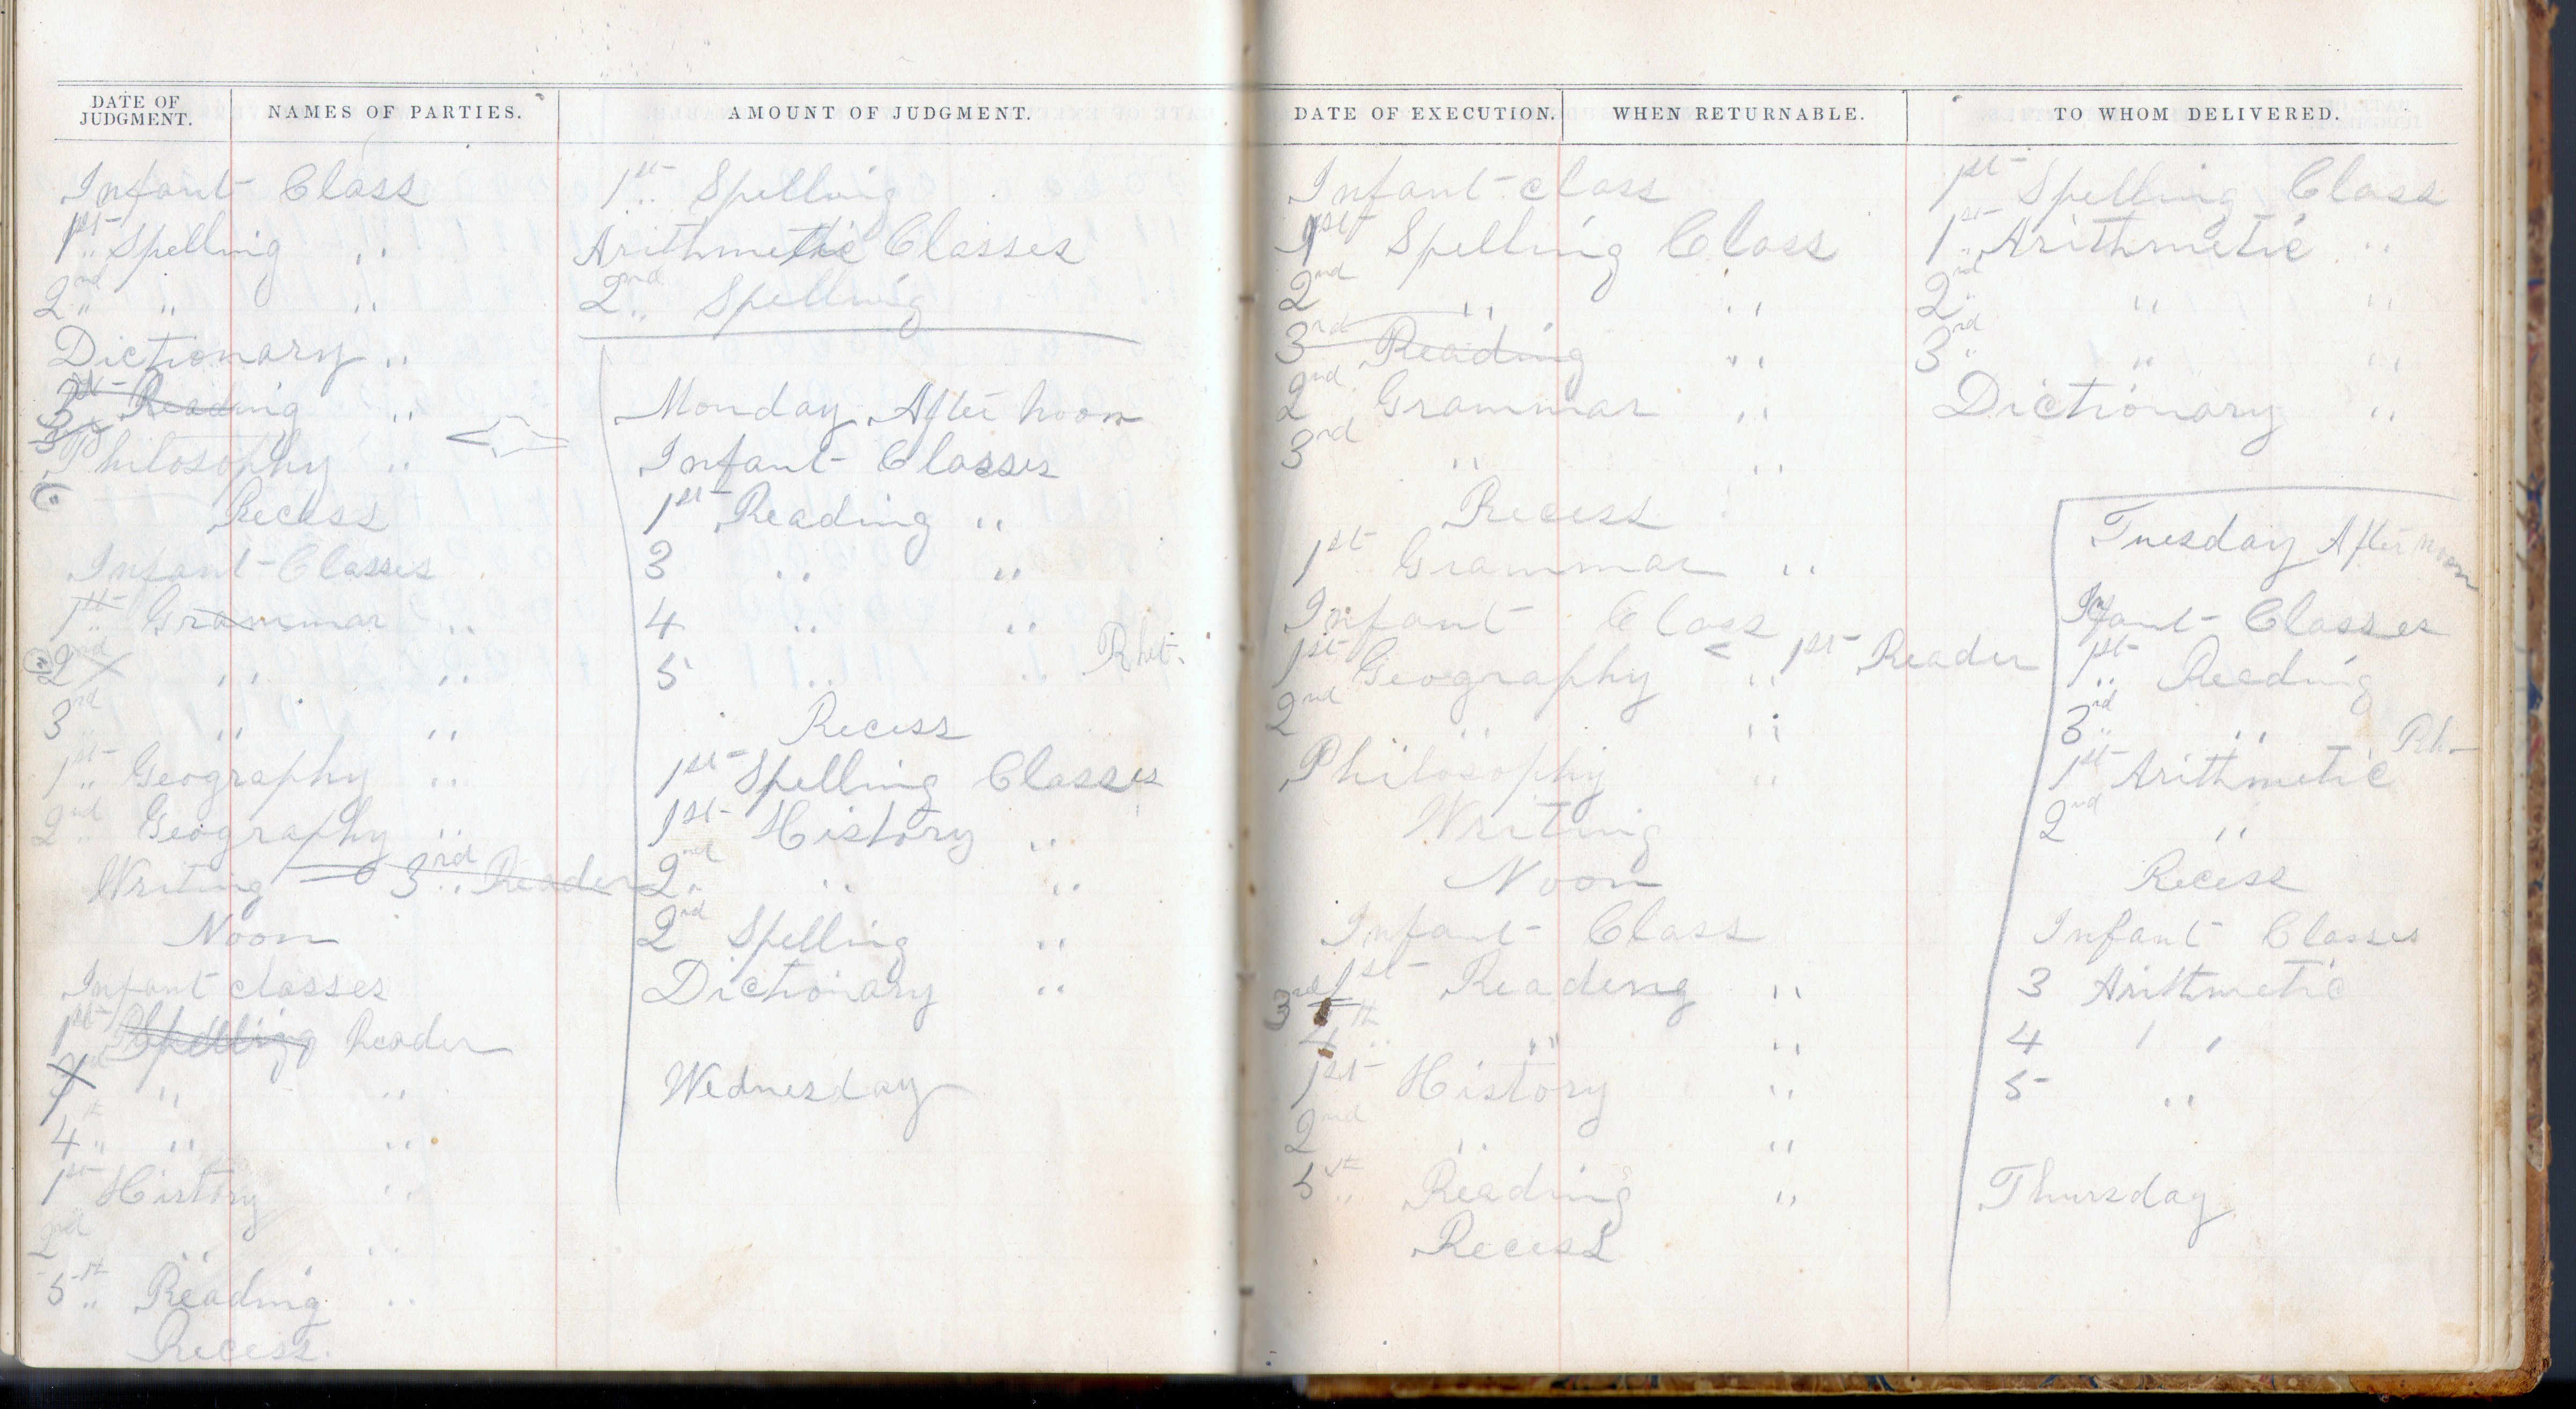 DATE OF JUDGMENT. NAMES OF PARTIES. AMOUNT OF JUDGMENT.
Infant Class
1st Spelling "
2nd " "
Dictionary "
Reading "
Philosophy "
Recess
Infant Classes
1st Grammar "
2nd " "
3rd " "
1st Geography "
2nd Geography "
Writing 3rd Reader
Noon
Infant classes
1st Spelling Reader
" "
4th " "
1st History "
2nd " "
5th Reading "
Recess.
1st Spelling
Arithmetic Classes
2nd Spelling
Monday After noon
Infant Classes
1st Reading "
3 " "
4 " "
5 " " Rhet.
Recess
1st Spelling Classes
1st History "
2nd " "
2nd Spelling "
Dictionary "
Wednesday
DATE OF EXECUTION. WHEN RETURNABLE. TO WHOM DELIVERED.
Infant class
1st Spelling Class
2nd " "
3rd Reading "
2nd Grammar "
3rd " "
Recess
1st Grammar "
Infant Class
1st Geography " < 1st Reader
2nd " "
Philosophy "
Writing
Noon
Infant Class
3rd 1st Reading "
4th " "
1st History "
2nd " "
5th Reading "
Recess
1st Spelling Class
1st Arithmetic "
2nd " "
3rd " "
Dictionary "
Tuesday After noon
Infant Classes
1st Reading
3rd " Rh
1st Arithmetic
2nd "
Recess
Infant Classes
3 Arithmetic
4 " 
5 "
Thursday